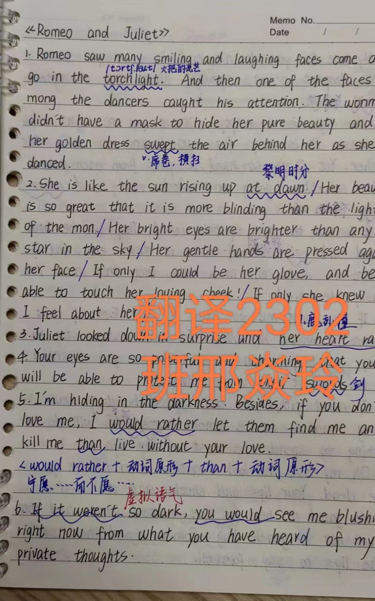 Memo No.
Date / /
《Romeo and Juliet》
1. Romeo saw many smiling and laughing faces come a
/ˈtɔːtʃlaɪt/ 火把的光芒
go in the torchlight. And then one of the faces
mong the dancers caught his attention. The wonm
didn't have a mask to hide her pure beauty and
her golden dress swept the air behind her as she
v. 席卷, 横扫
danced.
黎明时分
2. She is like the sun rising up at dawn / Her beau
is so great that it is more blinding than the light
of the mon / Her bright eyes are brighter than any
star in the sky / Her gentle hands are pressed aga
her face / If only I could be her glove, and be
able to touch her loving cheek! / If only she knew
I feel about her
3. Juliet looked down in surprise and her heart ra
4. Your eyes are so charming that you
will be able to protect me than swords 剑
5. I'm hiding in the darkness. besides, if you don'
love me, I would rather let them find me an
kill me than live without your love.
<would rather + 动词原形 + than + 动词原形>
宁愿……而不愿……
虚拟语气
6. If it weren't so dark, you would see me blushi
right now from what you have heard of my
private thoughts.
翻译2302
班邢焱玲